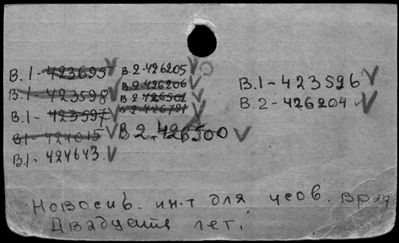 В.1-423695
В.1-423598
В.1-423597
В1-424615
В.1-424643
В.2-426205
В.2-426206
В.2-426501
В.2-426791
В.2.426500
В.1-423596
В.2-426204
Новосиб. ин-т для усов. врач
Двадцать лет.